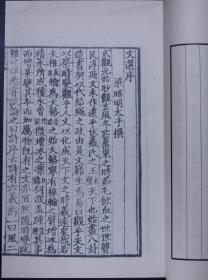 文選序
梁昭明太子撰
式觀元始眇覿玄風冬穴夏巢之時茹毛飲血之世世質
民淳斯文未作逮乎伏羲氏之王天下也始畫八卦
造書契以代結繩之政由是文籍生焉易曰觀乎天文
以察時變觀乎人文以化成天下文之時義遠矣哉若
夫椎輪為大輅之始大輅寧有椎輪之質增冰為
積水所成積水曾微增冰之凜何哉蓋踵其事
而增華變其本而加厲物既有之文亦宜然隨時變改
難可詳悉嘗試論之曰詩序云詩有六義焉一曰風